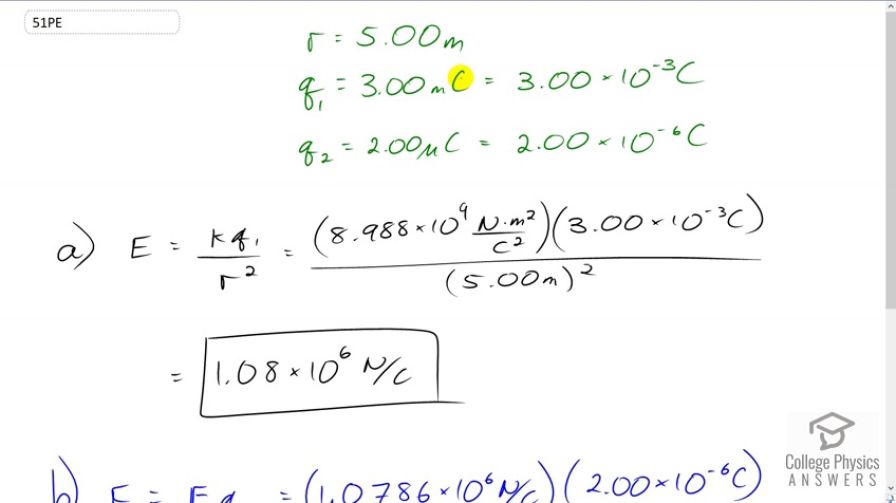 51PE
r = 5.00m
q₁ = 3.00mC = 3.00 × 10⁻³C
q₂ = 2.00μC = 2.00 × 10⁻⁶C
a) E = kq₁/r² = (8.988×10⁹ N·m²/C²)(3.00×10⁻³C)/(5.00m)²
= 1.08×10⁶ N/C
b) F = Eq = (1.0786×10⁶N/C)(2.00×10⁻⁶C)
College Physics
ANSWERS